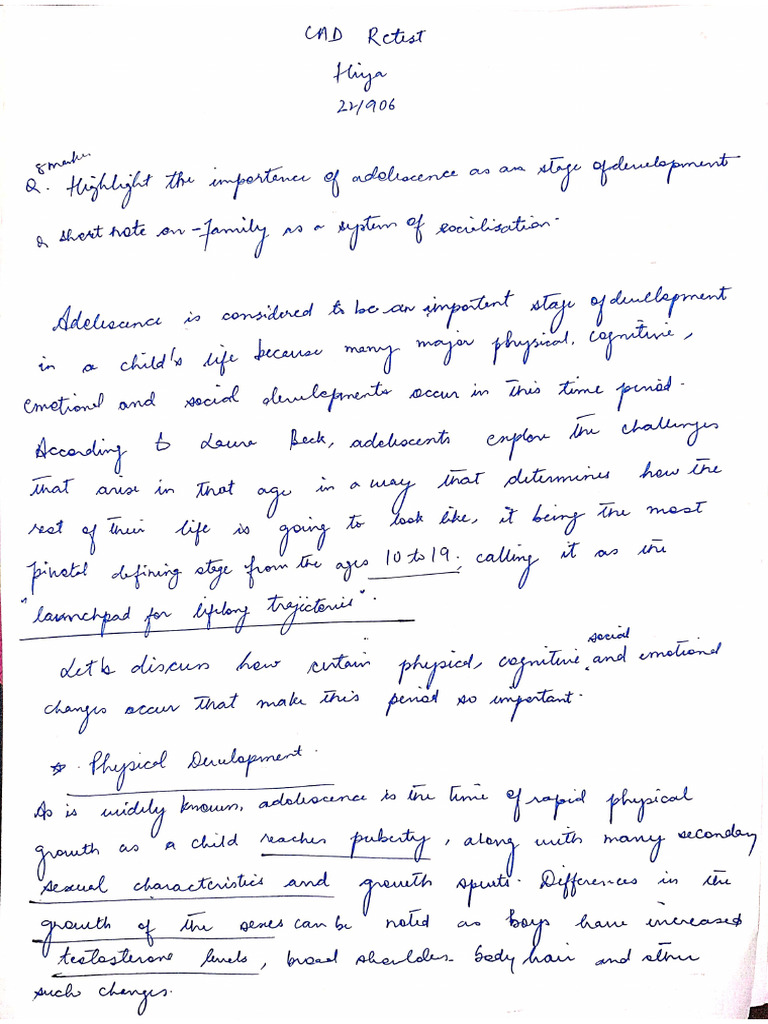 CAD Retest
Hiya
22/906
8 marks
Q. Highlight the importance of adolescence as an stage of development
Q short note on - family as a system of socialisation.
Adolescence is considered to be an important stage of development
in a child's life because many major physical, cognitive,
emotional and social developments occur in this time period.
According to Laura Beck, adolescents explore the challenges
that arise in that age in a way that determines how the
rest of their life is going to look like, it being the most
pivotal defining stage from the ages 10 to 19, calling it as the
"launchpad for lifelong trajectories".
Let's discuss how certain physical, cognitive, social and emotional
changes occur that make this period so important.
* Physical Development.
As is widely known, adolescence is the time of rapid physical
growth as a child reaches puberty, along with many secondary
sexual characteristics and growth spurts. Differences in the
growth of the sexes can be noted as boys have increased
testosterone levels, broad shoulders body hair and other
such changes.